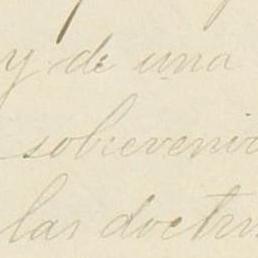 y de una
sobreveni
las doctri